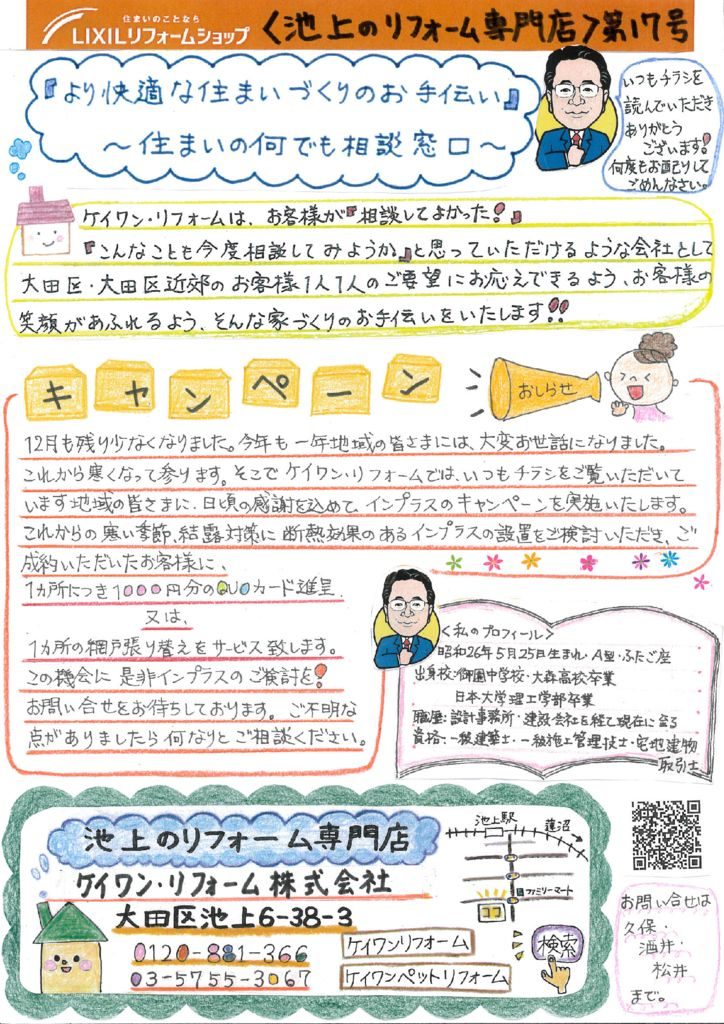 住まいのことなら
LIXILリフォームショップ
〈池上のリフォーム専門店〉第17号
『より快適な住まいづくりのお手伝い』
～住まいの何でも相談窓口～
いつもチラシを
読んでいただき
ありがとう
ございます!
何度もお配りして
ごめんなさい。
ケイワン・リフォームは、お客様が『相談してよかった!』
『こんなことも今度相談してみようか』と思っていただけるような会社として
大田区・大田区近郊のお客様1人1人のご要望にお応えできるよう、お客様の
笑顔があふれるよう、そんな家づくりのお手伝いをいたします!!
キャンペーン
おしらせ
12月も残り少なくなりました。今年も一年地域の皆さまには、大変お世話になりました。
これから寒くなって参ります。そこでケイワン・リフォームでは、いつもチラシをご覧いただいて
います地域の皆さまに、日頃の感謝を込めて、インプラスのキャンペーンを実施いたします。
これからの寒い季節、結露対策に断熱効果のあるインプラスの設置をご検討いただき、ご
成約いただいたお客様に、
1カ所につき1000円分のQUOカード進呈
又は、
1カ所の網戸張り替えをサービス致します。
この機会に是非インプラスのご検討を!
お問い合せをお待ちしております。ご不明な
点がありましたら何なりとご相談ください。
〈私のプロフィール〉
昭和26年5月25日生まれ・A型・ふたご座
出身校:御園中学校・大森高校卒業
日本大学理工学部卒業
職歴:設計事務所・建設会社を経て現在に至る
資格:一級建築士・一級施工管理技士・宅地建物
取引士
池上のリフォーム専門店
ケイワン・リフォーム株式会社
大田区池上6-38-3
0120-881-366
03-5755-3067
ケイワンリフォーム
ケイワンペットリフォーム
検索
池上駅
蓮沼
ファミリーマート
ココ
お問い合せは
久保・
酒井・
松井
まで。